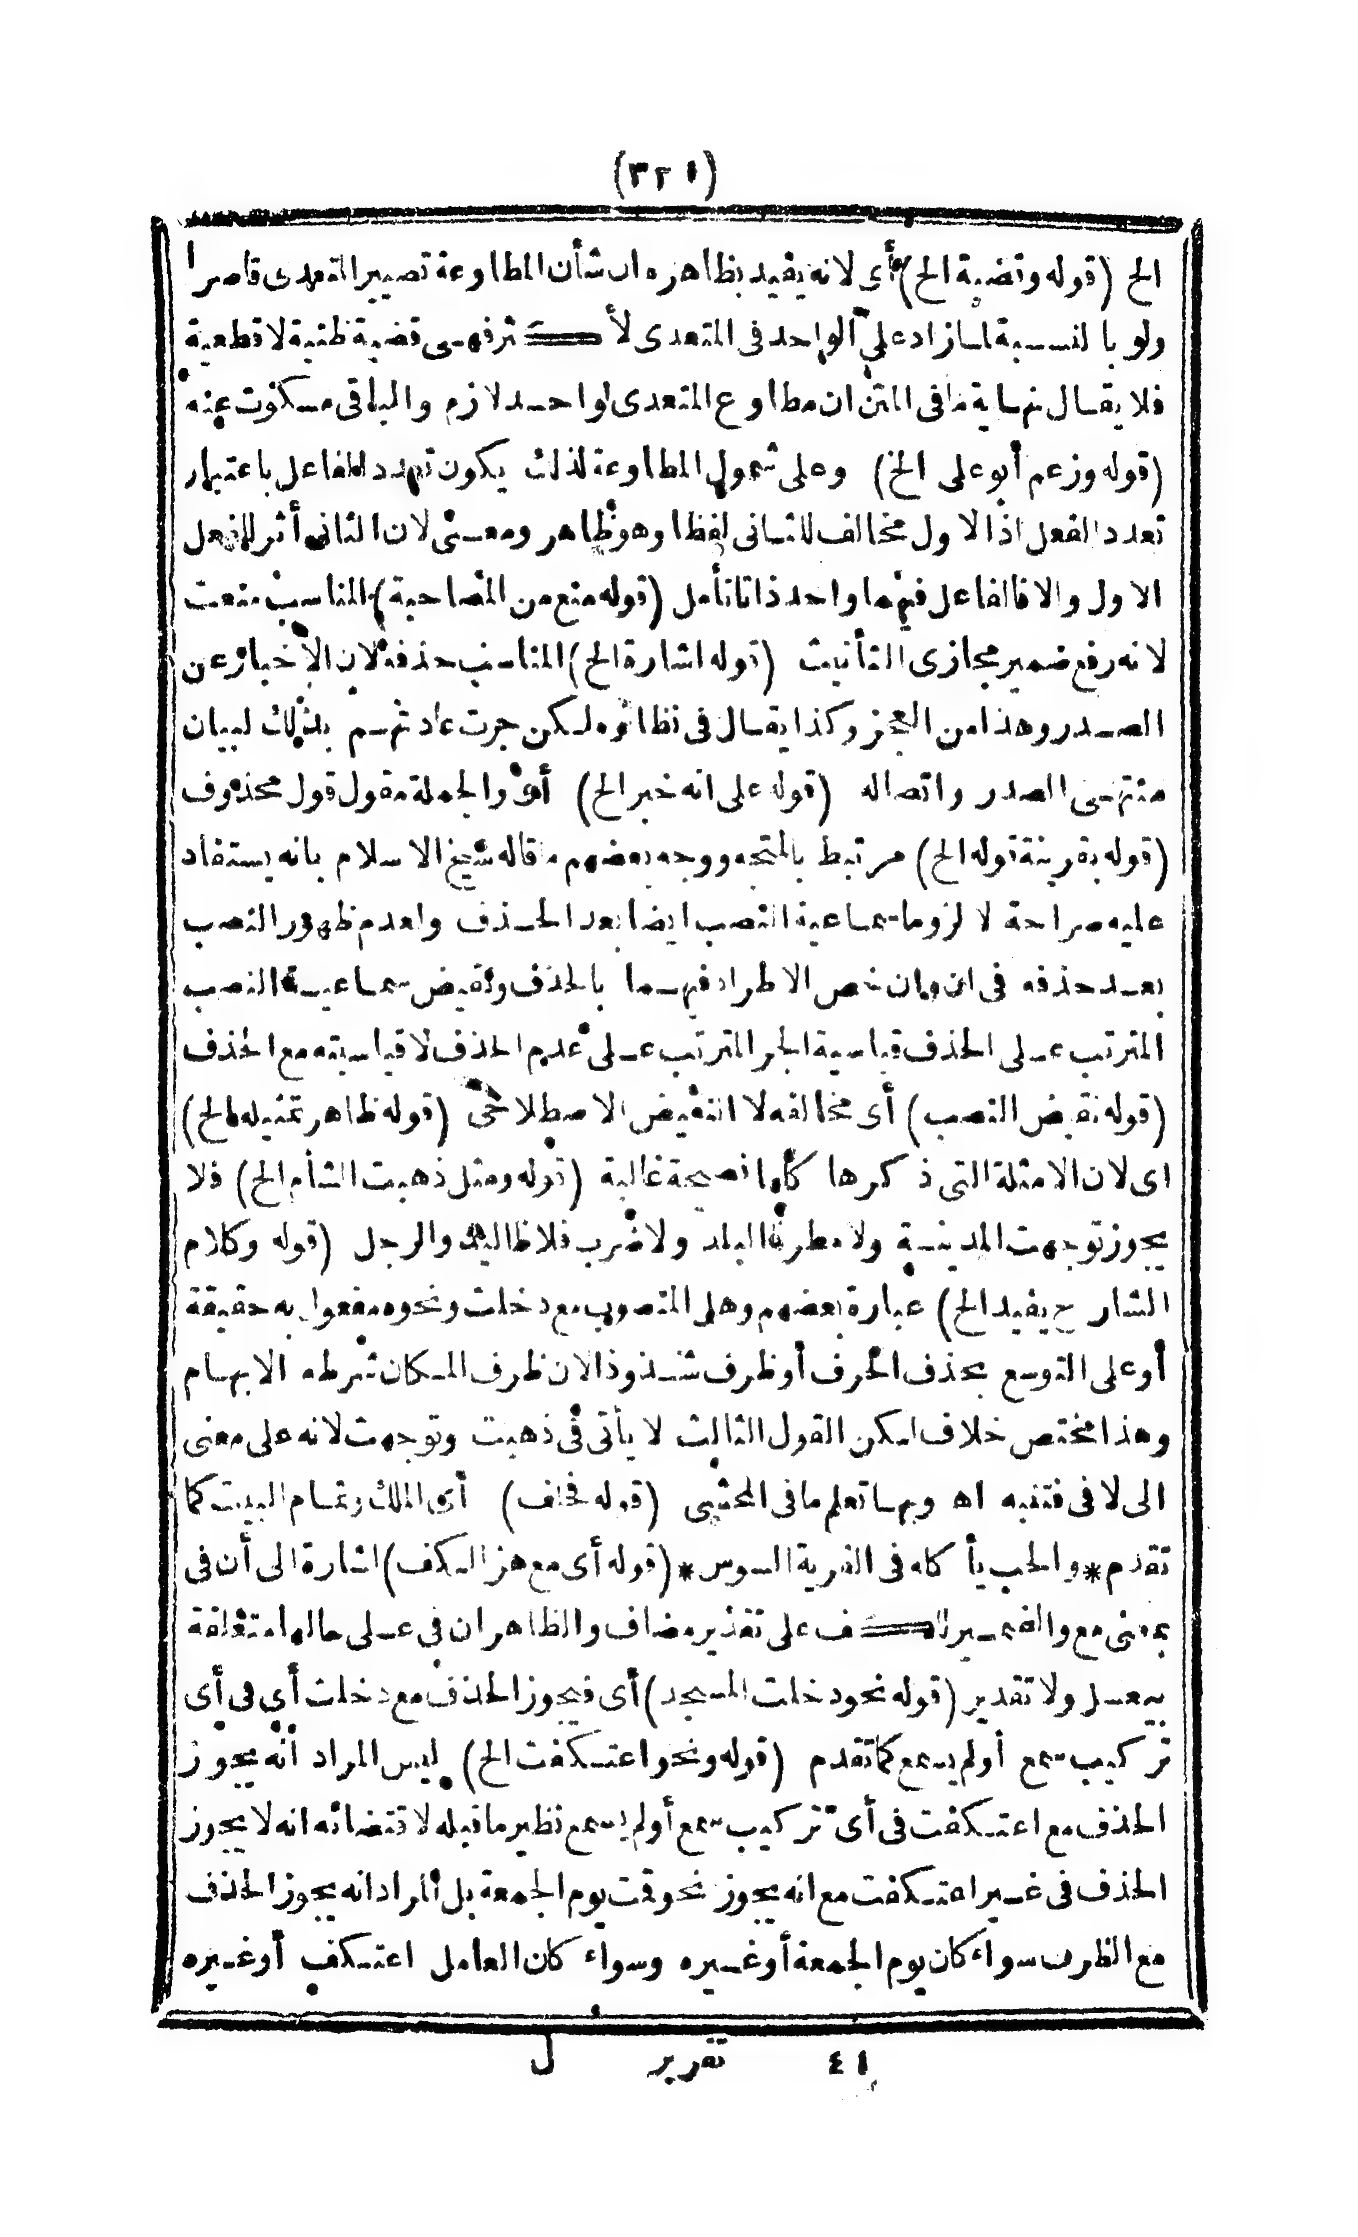 (٣٢١)
الخ (قوله وقضية الخ) أى لانه يفيد بظاهره ان شأن المطاوعة تصيير المتعدى قاصرا
ولو بالنسبة لما زاد على الواحد فى المتعدى لأكثر فهى قضية ظنية لا قطعية
فلا يقال نهاية ما فى المتن ان مطاوع المتعدى لواحد لازم والباقى مسكوت عنه
(قوله وزعم أبو على الخ) وعلى شمول المطاوعة لذلك يكون تعدد الفاعل باعتبار
تعدد الفعل اذ الاول مخالف للثانى لفظا وهو ظاهر ومعنى لان الثانى أثر للفعل
الاول والا فالفاعل فيهما واحد ذاتا تأمل (قوله منع من المصاحبة) المناسب منعت
لانه رفع ضمير مجازى التأنيث (قوله اشارة الخ) المناسب حذفه لان الاخبار عن
الصدر وهذا من العجز وكذا يقال فى نظائره لكن جرت عادتهم بذلك لبيان
منتهى الصدر واتصاله (قوله على انه خبر الخ) أى والجملة مقول قول محذوف
(قوله بقرينة قوله الخ) مرتبط بالمتجه ووجه بعضهم ما قاله شيخ الاسلام بانه يستفاد
عليه صراحة لا لزوما سماعية النصب ايضا بعد الحذف ولعدم ظهور النصب
بعد حذفه فى ان وان خص الاطراد فيهما بالحذف ونقيض سماعية النصب
المترتب على الحذف قياسية الجر المترتب على عدم الحذف لا قياسيته مع الحذف
(قوله نقيض النصب) أى مخالفه لا النقيض الاصطلاحى (قوله ظاهر تمثيله الخ)
اى لان الامثلة التى ذكرها كلها نصيحة غالبة (قوله ومثل ذهبت الشأم الخ) فلا
يجوز توجهت المدينة ولا مطرنا البلد ولا ضرب فلان الظهر والرجل (قوله وكلام
الشارح يفيد الخ) عبارة بعضهم وهل المنصوب مع دخلت ونحوه مفعول به حقيقة
أو على التوسع بحذف الحرف أو ظرف شذوذا لان ظرف المكان شرطه الابهام
وهذا مختص خلاف لكن القول الثالث لا يأتى فى ذهبت وتوجهت لانه على معنى
الى لا فى فتنبه اه وبها تعلم ما فى المحشى (قوله فخلف) أى الملك وتمام البيت كما
تقدم * والحب يأكله فى القرية السوس * (قوله أى مع هز الكف) اشارة الى أن فى
بمعنى مع والضمير للكف على تقدير مضاف والظاهر ان فى على حالها متعلقة
بيعسل ولا تقدير (قوله نحو دخلت المسجد) أى فيجوز الحذف مع دخلت أى فى أى
تركيب سمع أو لم يسمع كما تقدم (قوله ونحو اعتكفت الخ) ليس المراد أنه يجوز
الحذف مع اعتكفت فى أى تركيب سمع أو لم يسمع نظير ما قبله لاقتضائه انه لا يجوز
الحذف فى غير اعتكفت مع انه يجوز نحو قت يوم الجمعة بل المراد انه يجوز الحذف
مع الظرف سواء كان يوم الجمعة أو غيره وسواء كان العامل اعتكف أو غيره
٤١ تقرير ل